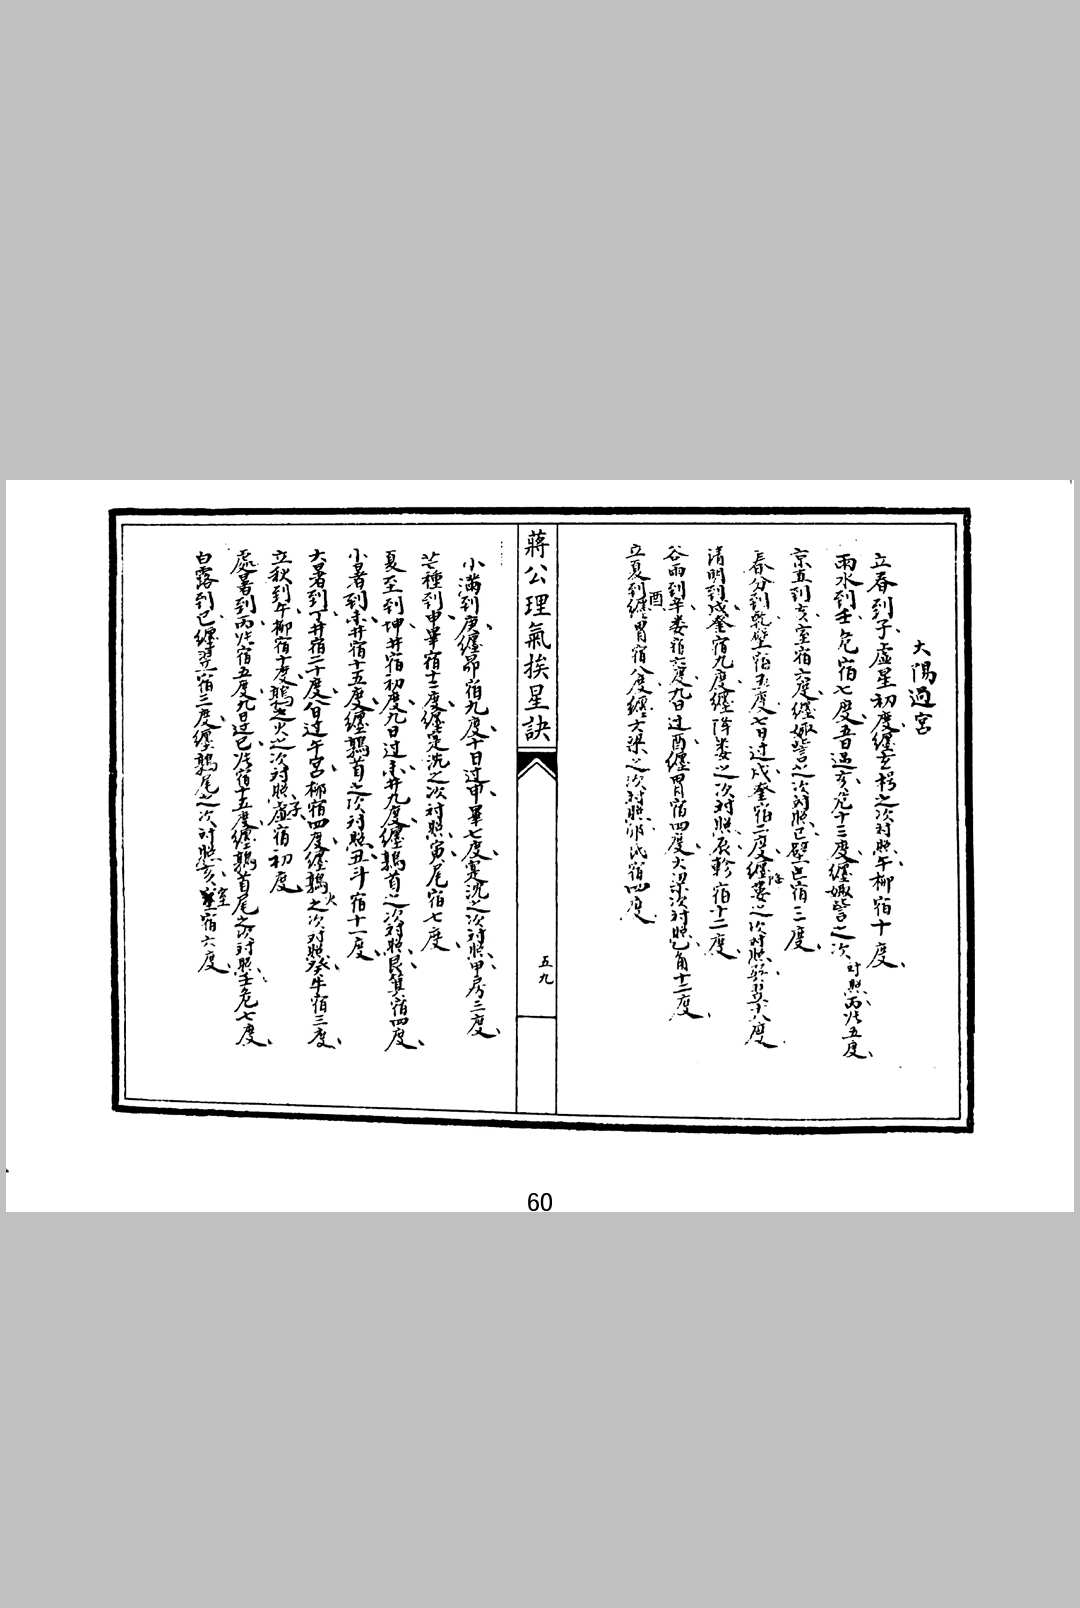 大陽過宮
立春到子虛星初度纏玄枵之次対照午柳宿十度
雨水到壬危宿七度五日过亥危十三度纏娵訾之次対照丙张五度
京直到亥室宿六度纏娵訾之次対照巳宿三度
春分到乾壁宿五度七日过戌奎宿二度纏降婁之次対照翼八度
清明到戌奎宿九度纏降娄之次対照辰軫宿十二度
谷雨到辛娄宿六度九日过酉纏胃宿四度大梁次対照乙角十二度
立夏到酉纏胃宿八度纏大梁之次対照卯氐宿四度
蔣公理氣挨星訣
五九
小滿到庚纏昴宿九度十日过申畢七度寔沈之次対照甲房三度
芒種到申畢宿十二度纏寔沈之次対照寅尾宿七度
夏至到坤井宿初度九日过未井九度纏鶉首之次対照艮箕宿四度
小暑到未井宿十五度纏鶉首之次対照丑斗宿十一度
大暑到丁井宿二十度八日过午宮柳宿四度纏鶉火之次対照癸牛宿三度
立秋到午柳宿十度鶉之火之次対照子虛宿初度
處暑到丙张宿五度九日过巳张宿十五度纏鶉首尾之次対照壬危七度
白露到巳纏翼宿三度纏鶉尾之次対照亥室宿六度
60